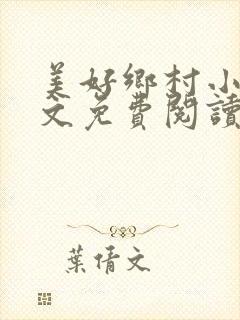 美好鄉村小
文免費閱讀
葉倩文